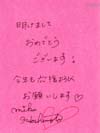 明けまして
おめでとう
ございます!
今年も応援よろしく
お願いします♡